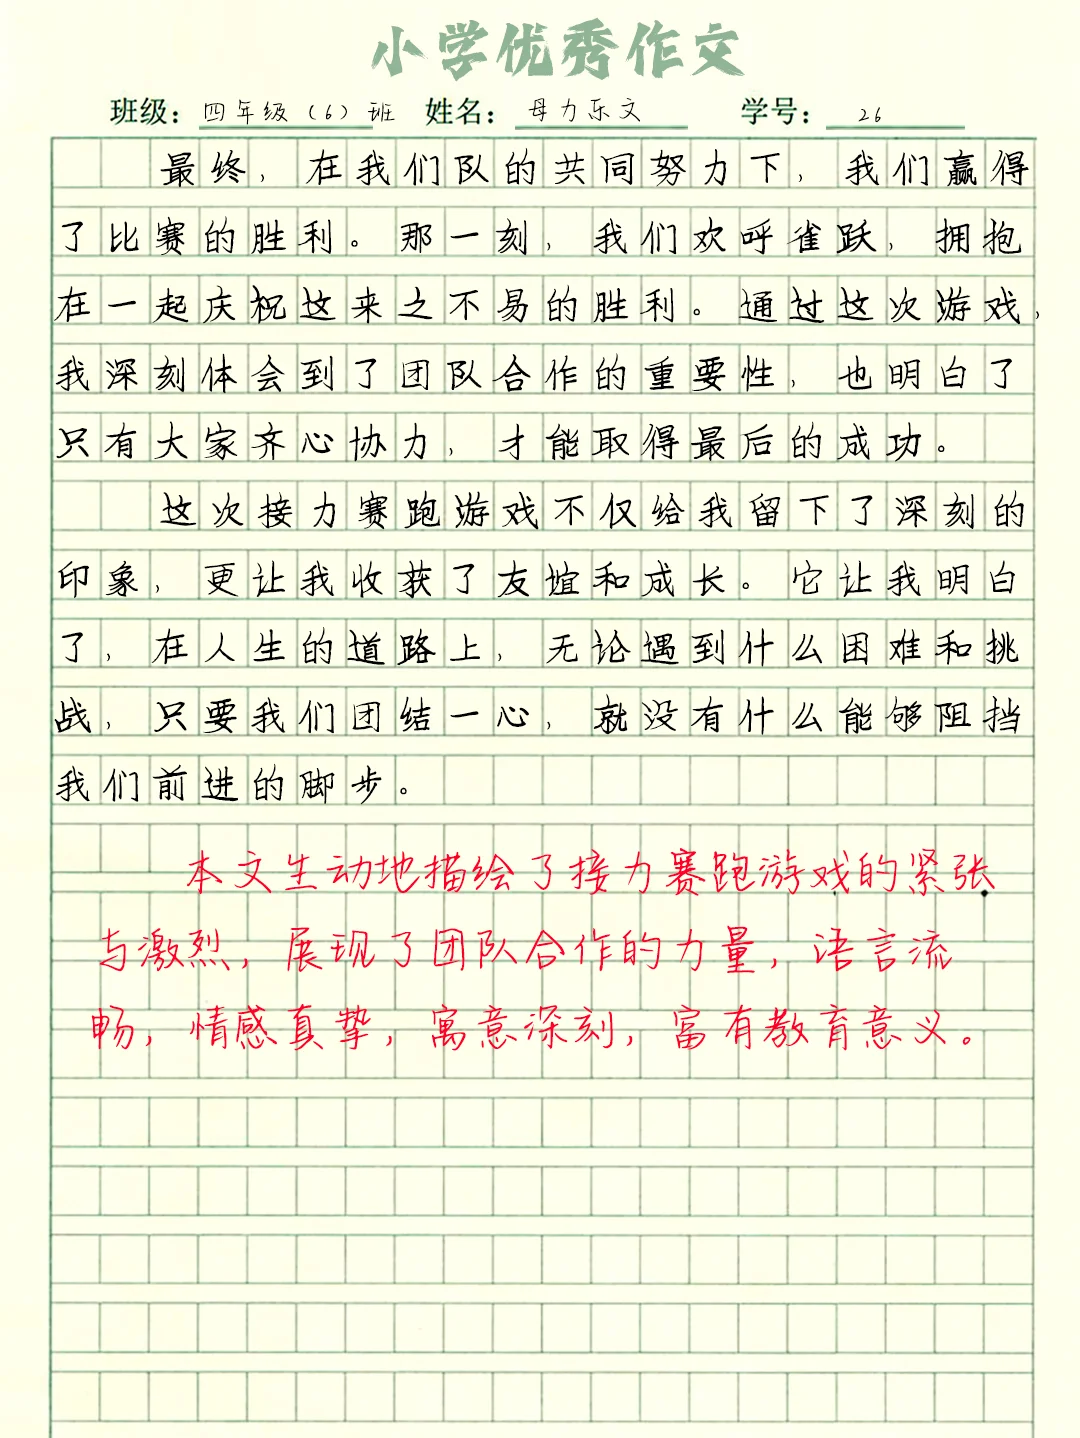 小学优秀作文
班级：四年级（6）班 姓名：母力乐文 学号：26
最终，在我们队的共同努力下，我们赢得
了比赛的胜利。那一刻，我们欢呼雀跃，拥抱
在一起庆祝这来之不易的胜利。通过这次游戏，
我深刻体会到了团队合作的重要性，也明白了
只有大家齐心协力，才能取得最后的成功。
这次接力赛跑游戏不仅给我留下了深刻的
印象，更让我收获了友谊和成长。它让我明白
了，在人生的道路上，无论遇到什么困难和挑
战，只要我们团结一心，就没有什么能够阻挡
我们前进的脚步。
本文生动地描绘了接力赛跑游戏的紧张
与激烈，展现了团队合作的力量，语言流
畅，情感真挚，寓意深刻，富有教育意义。